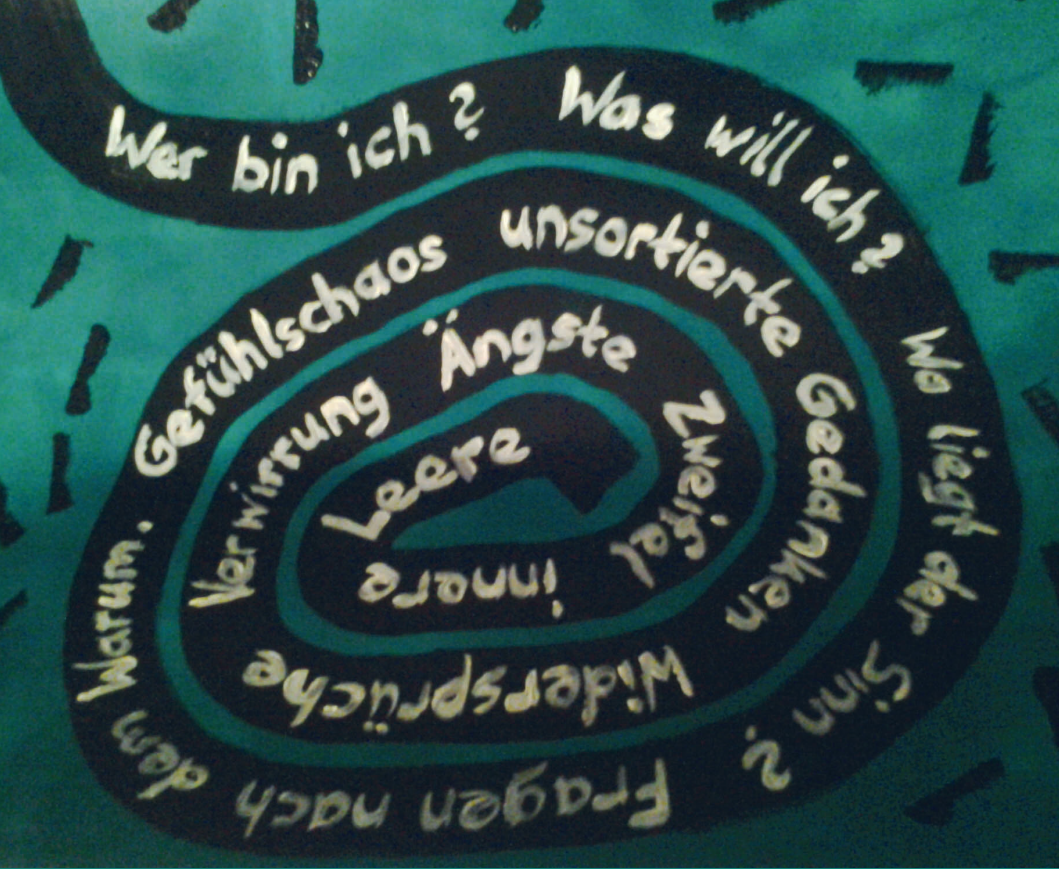 Wer bin ich? Was will ich? Wo liegt der Sinn? Fragen nach dem Warum. Gefühlschaos unsortierte Gedanken Widersprüche Verwirrung Ängste Zweifel innere Leere